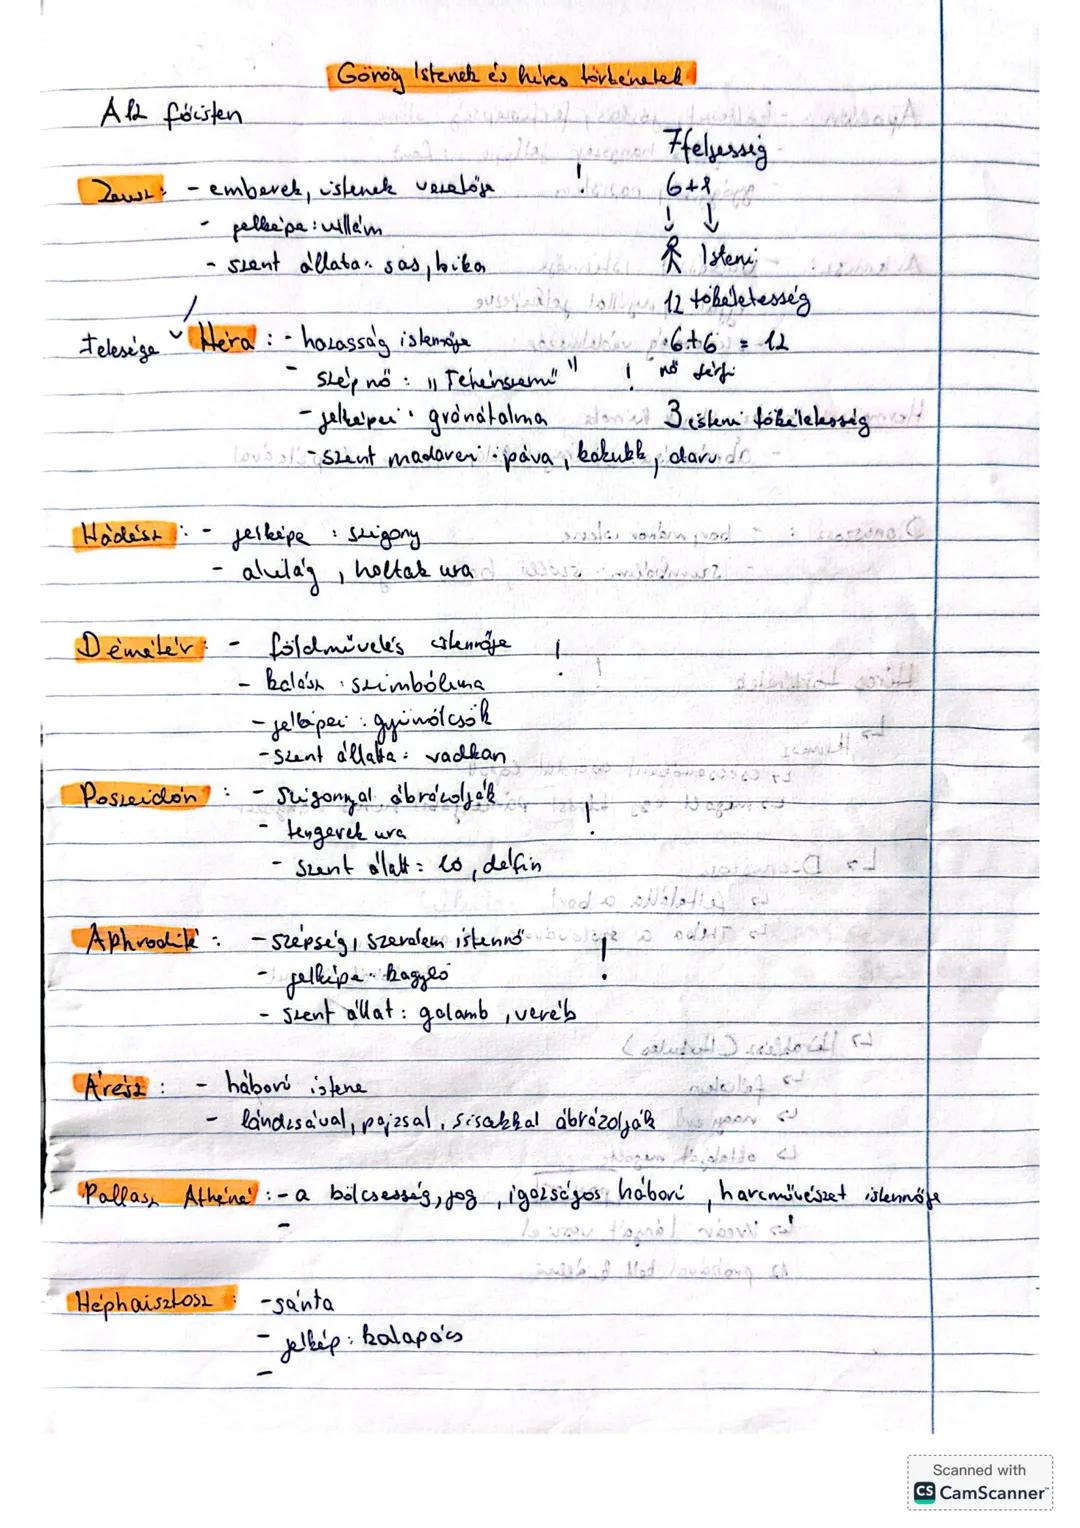 Görög Istenek és híres történetek
A 12 főisten
7 teljesség
Zeusz: - emberek, istenek vezetője ! 6+1
- jelképe: villám ↓ ↓
- szent állata: sas, bika Isteni
12 tökéletesség
Felesége Héra: - házasság istennője 6+6 = 12
- szép nő: "Tehénszemű" ! nő férfi
- jelképei: gránátalma 3 isteni tökéletesség
- szent madarai: páva, kakukk, daru
Hádész: - jelképe: szigony
- alvilág, holtak ura
Démétér: - földművelés istennője !
- kalász szimbóluma
- jelképei: gyümölcsök
- szent állata: vadkan
Poszeidón: - szigonnyal ábrázolják
- tengerek ura !
- szent állat: ló, delfin
Aphrodité: - szépség, szerelem istennő !
- jelképe: kagyló
- szent állat: galamb, veréb
Árész: - háború istene
- lándzsával, pajzsal, sisakkal ábrázolják
Pallasz Athéné: - a bölcsesség, jog, igazságos háború, harcművészet istennője
-
Héphaisztosz: - sánta
- jelkép: kalapács
-
Scanned with
CS CamScanner